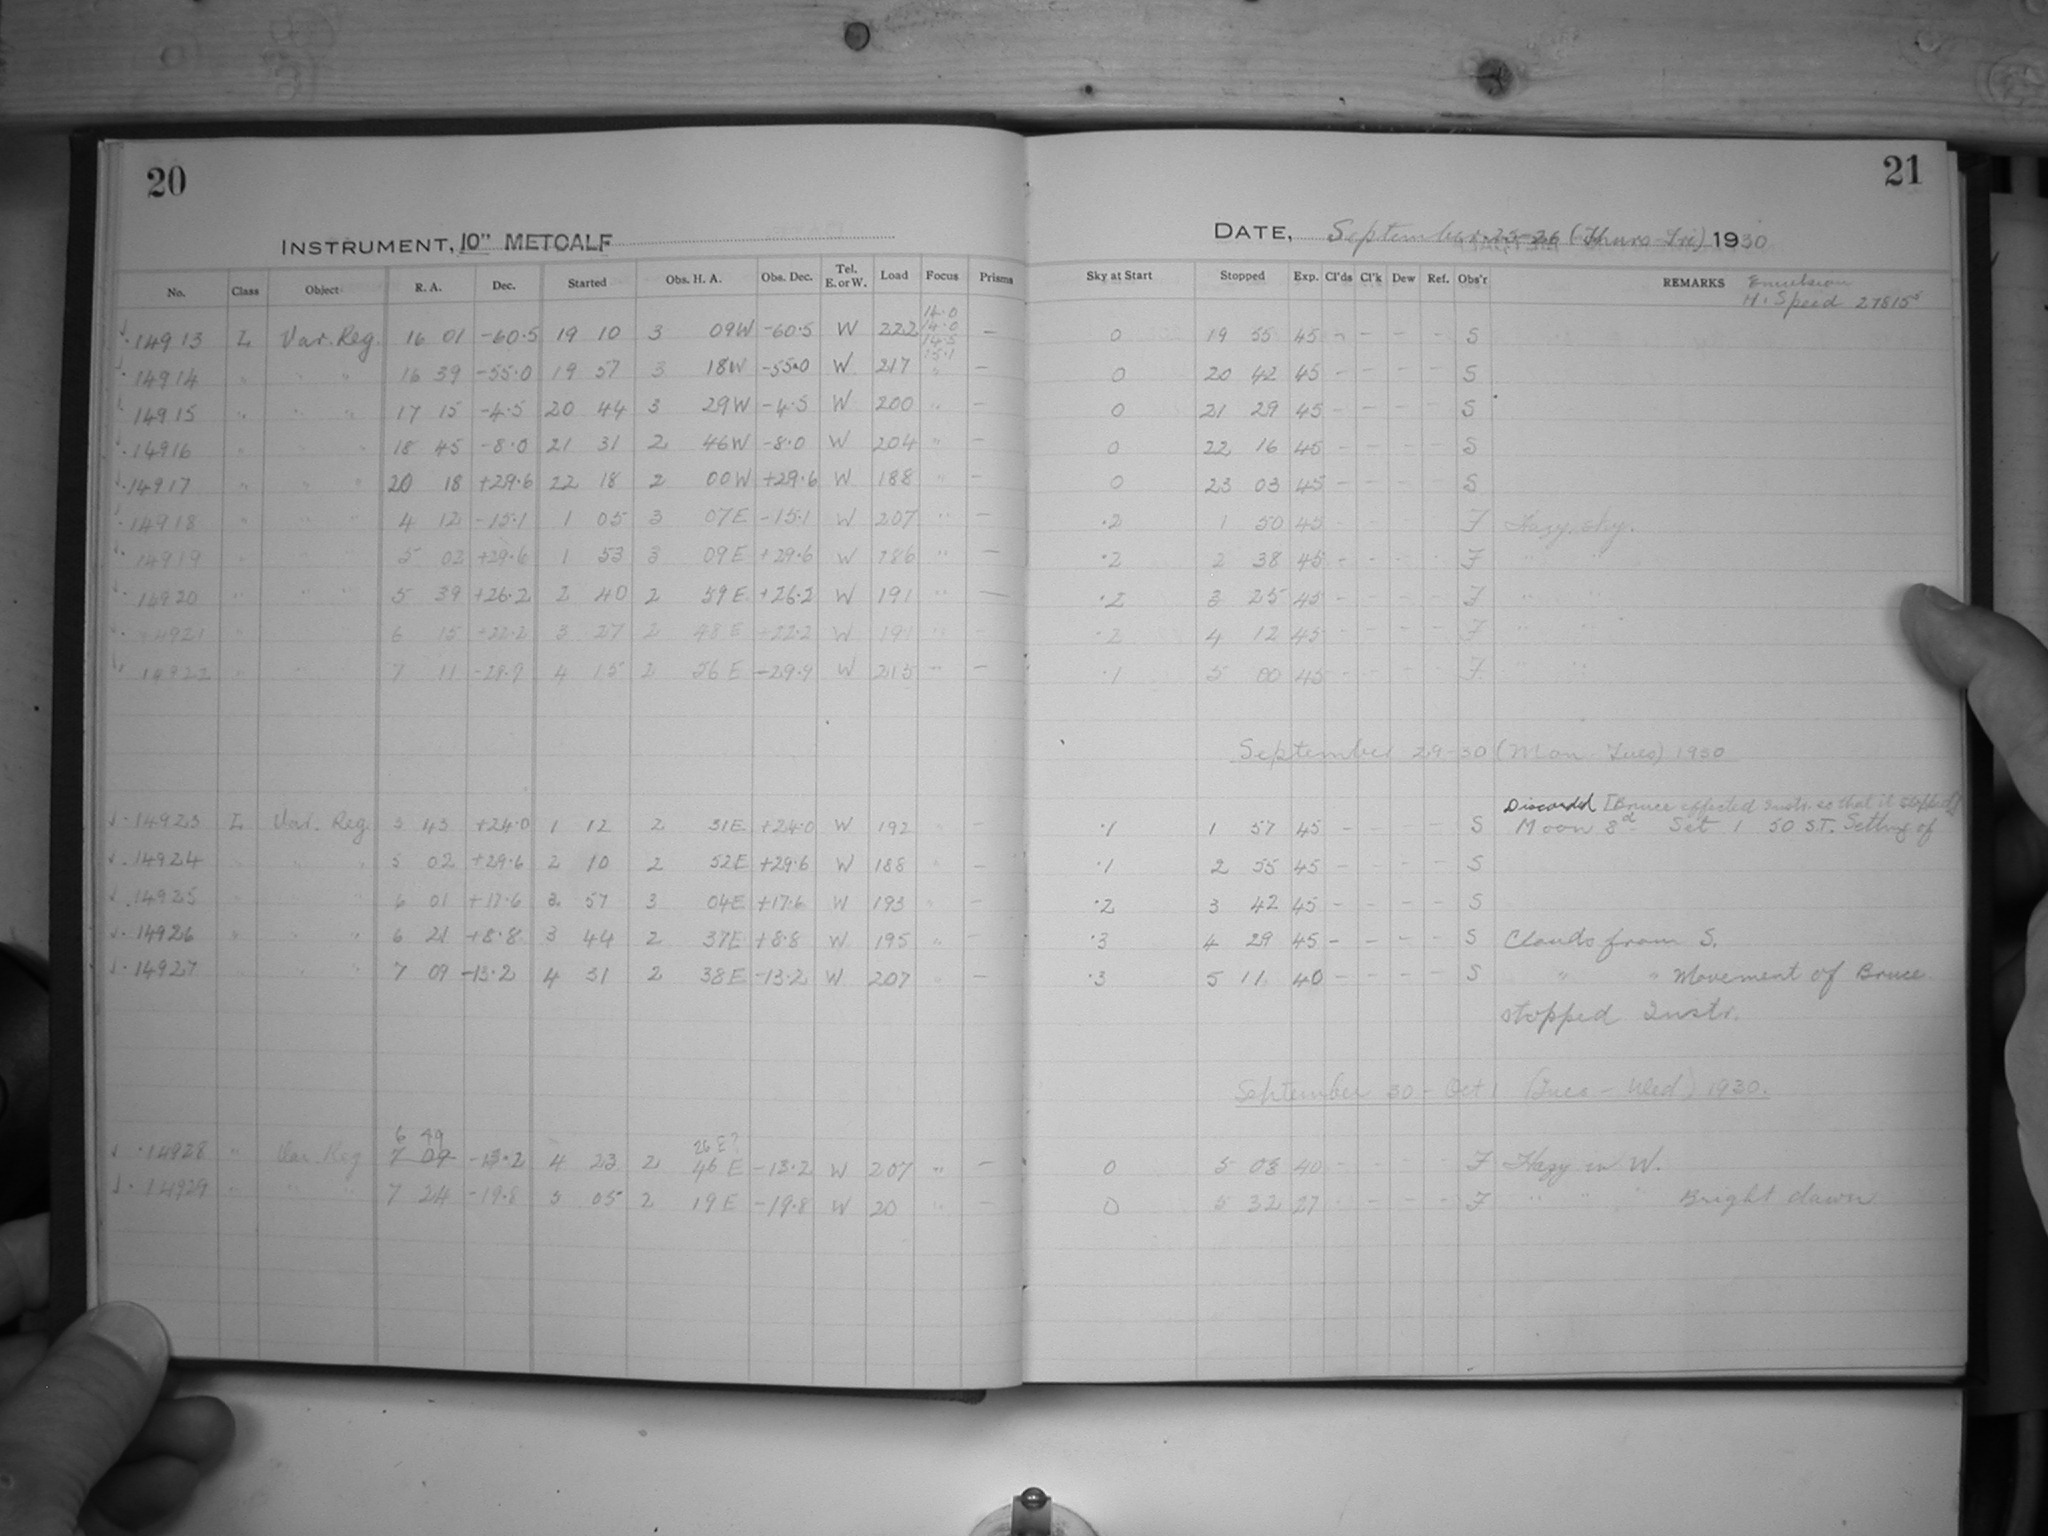 20
21
INSTRUMENT, 10" METCALF
DATE, September 25-26 (Thurs Fri) 1930
No. Class Object R. A. Dec. Started Obs. H. A. Obs. Dec. Tel. E. or W. Load Focus Prisms Sky at Start Stopped Exp. Cl'ds Cl'k Dew Ref. Obs'r REMARKS Emulsion
H. Speed 27815
14.0
14.0
14.5
15.1
14913 L Var. Reg. 16 01 -60.5 19 10 3 09W -60.5 W 222 — 0 19 55 45 - - - - S
14914 " " " 16 39 -55.0 19 57 3 18W -55.0 W 217 " — 0 20 42 45 - - - - S
14915 " " " 17 15 -4.5 20 44 3 29W -4.5 W 200 " — 0 21 29 45 - - - - S
14916 " " " 18 45 -8.0 21 31 2 46W -8.0 W 204 " — 0 22 16 45 - - - - S
14917 " " " 20 18 +29.6 22 18 2 00W +29.6 W 188 " — 0 23 03 45 - - - - S
14918 " " " 4 12 -15.1 1 05 3 07E -15.1 W 207 " — .2 1 50 45 - - - - F Hazy sky.
14919 " " " 5 03 +29.6 1 53 3 09E +29.6 W 186 " — .2 2 38 45 - - - - F " "
14920 " " " 5 39 +26.2 2 40 2 59E +26.2 W 191 " — .2 3 25 45 - - - - F " "
14921 " " " 6 15 +22.2 3 27 2 48E +22.2 W 191 " — .2 4 12 45 - - - - F " "
14922 " " " 7 11 -29.9 4 15 2 56E -29.9 W 215 " — .1 5 00 45 - - - - F " "
September 29-30 (Mon-Tues) 1930
Discarded [Bruce affected Instr. so that it stopped]
14923 L Var. Reg. 3 43 +24.0 1 12 2 31E +24.0 W 192 — .1 1 57 45 - - - - S Moon 8d Set 1 50 S.T. Setting of
14924 " " 5 02 +29.6 2 10 2 52E +29.6 W 188 " — .1 2 55 45 - - - - S
14925 " " 6 01 +17.6 2 57 3 04E +17.6 W 193 " — .2 3 42 45 - - - - S
14926 " " " 6 21 +8.8 3 44 2 37E +8.8 W 195 " — .3 4 29 45 - - - - S Clouds from S.
14927 " " 7 09 -13.2 4 31 2 38E -13.2 W 207 " — .3 5 11 40 - - - - S " " Movement of Bruce
stopped Instr.
September 30 - Oct 1 (Tues - Wed) 1930.
6 49
26 E?
14928 " Var Reg 7 09 -13.2 4 23 2 46 E -13.2 W 207 " — 0 5 03 40 - - - - F Hazy in W.
14929 " " " 7 24 -19.8 5 05 2 19 E -19.8 W 20 " — 0 5 32 27 - - - - F " " " Bright dawn